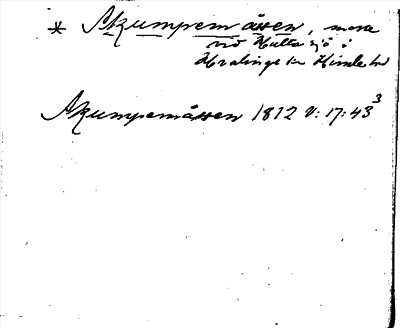 * Skumpemåssen, mosse
vid Hulta sjö i
Hvalinge sn Himle hd
Skumpemåssen 1812 V: 17:43³